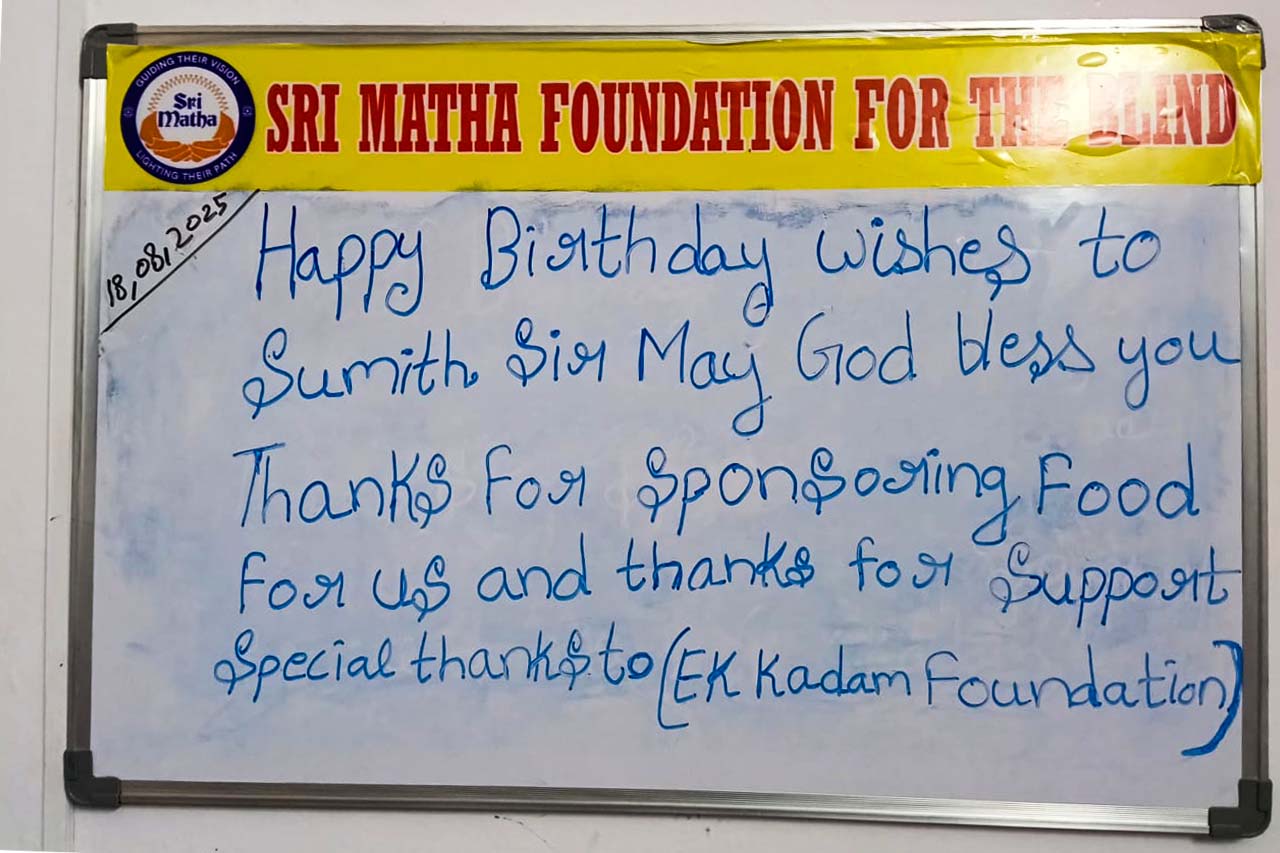 GUIDING THEIR VISION
Sri
Matha
LIGHTING THEIR PATH
SRI MATHA FOUNDATION FOR THE BLIND
18,08,2025
Happy Birthday wishes to
Sumith Sir May God bless you
Thanks For Sponsoring Food
For us and thanks for Support
Special thanks to (EK Kadam Foundation)